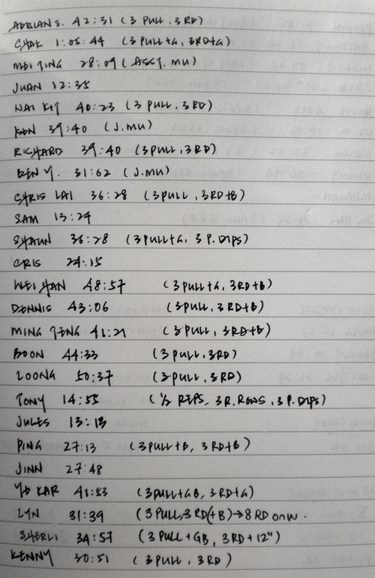 ADRIAN S. 42:31 (3 PULL, 3RD)
CHAK 1:05:44 (3 PULL+G, 3RD+G)
MEI TING 28:09 (ASST. MU)
JUAN 12:35
WAI KIT 40:23 (3 PULL, 3RD)
KEN 39:40 (J.MU)
RICHARD 39:40 (3PULL, 3RD)
BEN Y. 31:62 (J.MU)
CHRIS LAI 36:28 (3PULL, 3RD+B)
SAM 13:29
SHAUN 36:28 (3PULL+G, 3 P. DIPS)
CRIS 24:15
WEI HAN 48:57 (3 PULL+G, 3RD+B)
DENNIS 43:06 (3 PULL, 3 RD+B)
MING 41:21 (3 PULL, 3RD+B)
BOON 44:33 (3 PULL, 3RD)
LOONG 50:37 (3 PULL, 3 RD)
TONY 14:55 (1/2 REPS, 3 R. ROWS, 3 P. DIPS)
JULES 13:13
PING 27:13 (3 PULL+B, 3RD+B)
JINN 27:48
YE KAR 41:53 (3PULL+GB, 3RD+G)
LYN 31:39 (3 PULL, 3RD(+B)→8 RD ONW.
SHERLI 34:57 (3 PULL+GB, 3RD+12")
KENNY 30:51 (3 PULL, 3RD)